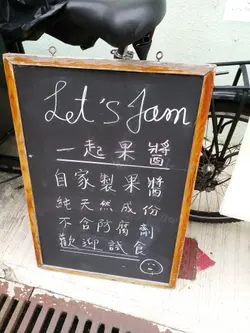 Let's Jam
一起果醬
自家製果醬
純天然成份
不含防腐劑
歡迎試食